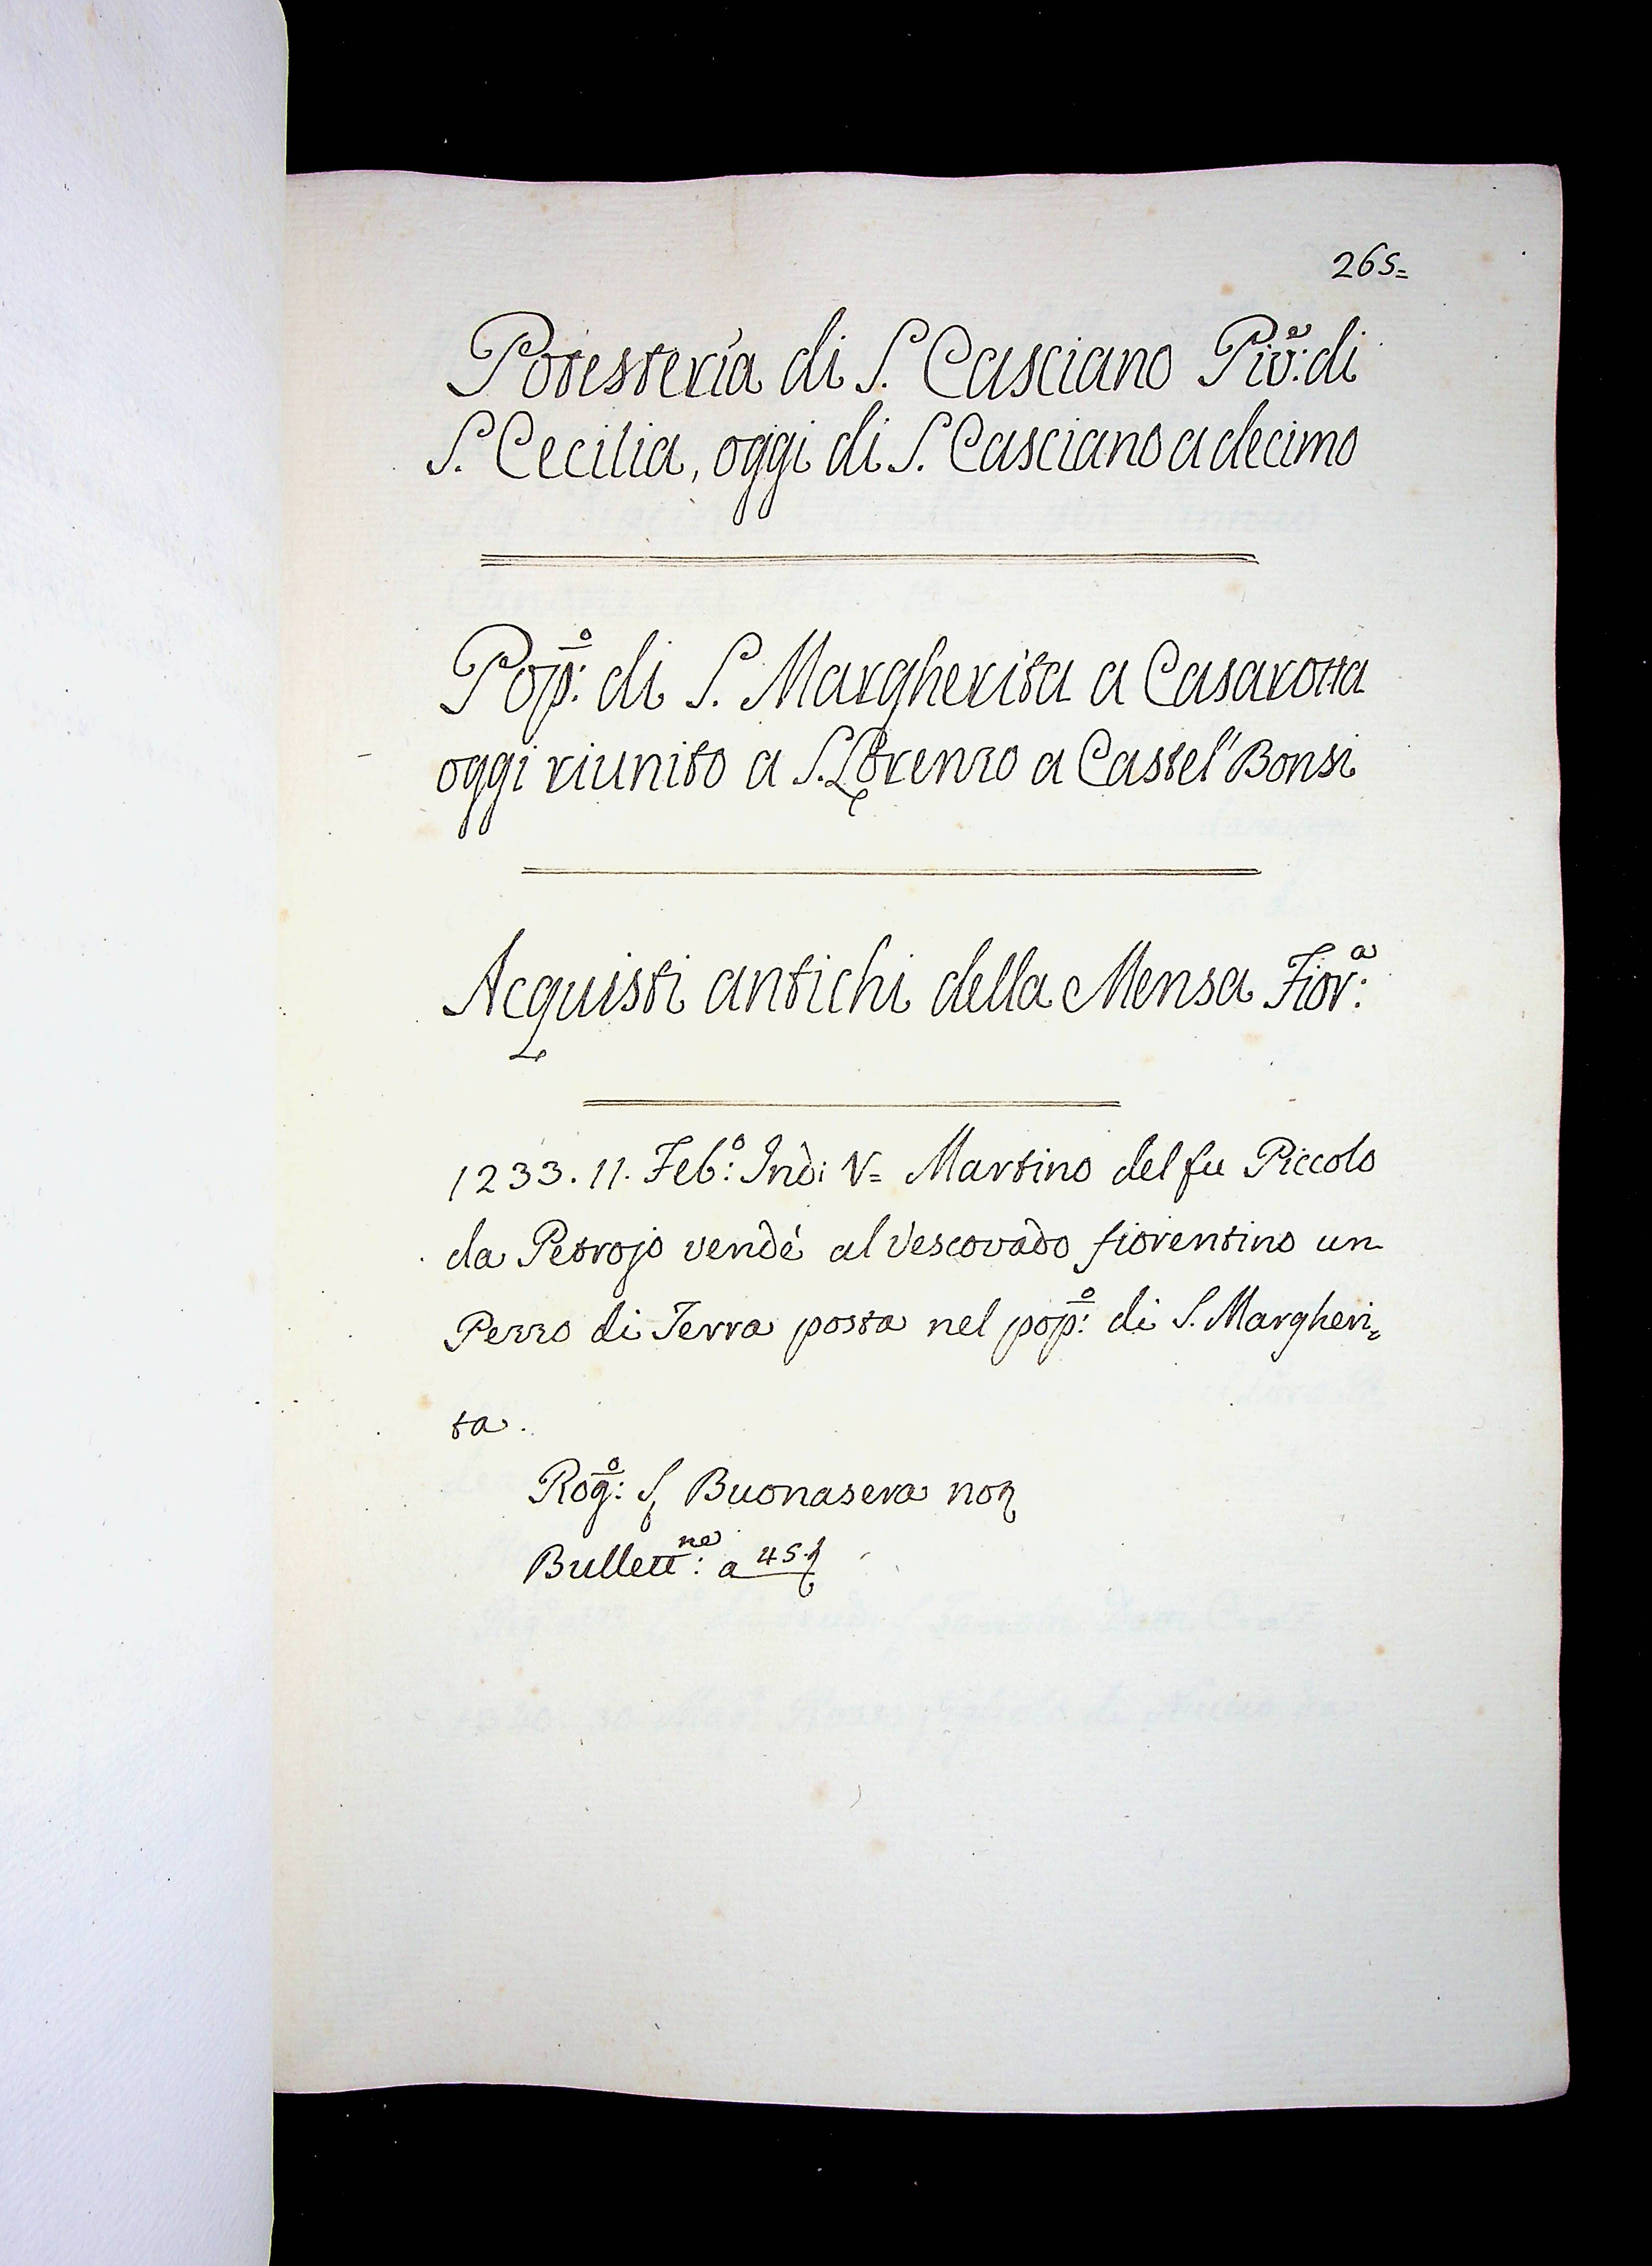 265=
Potesteria di S. Casciano Piv:e di
S. Cecilia, oggi di S. Casciano a decimo
Pop:o di S. Margherita a Casarotta
oggi riunito a S. Lorenzo a Castel' Bonsi
Acquisti antichi della Mensa Fior:a
1233. 11. Feb:o Ind: V= Martino del fu Piccolo
da Petrojo vendè al Vescovado fiorentino un
Pezzo di Terra posta nel pop:o di S. Margheri=
ta.
Rog:o S. Buonasera not
Bullett:ne a 45.